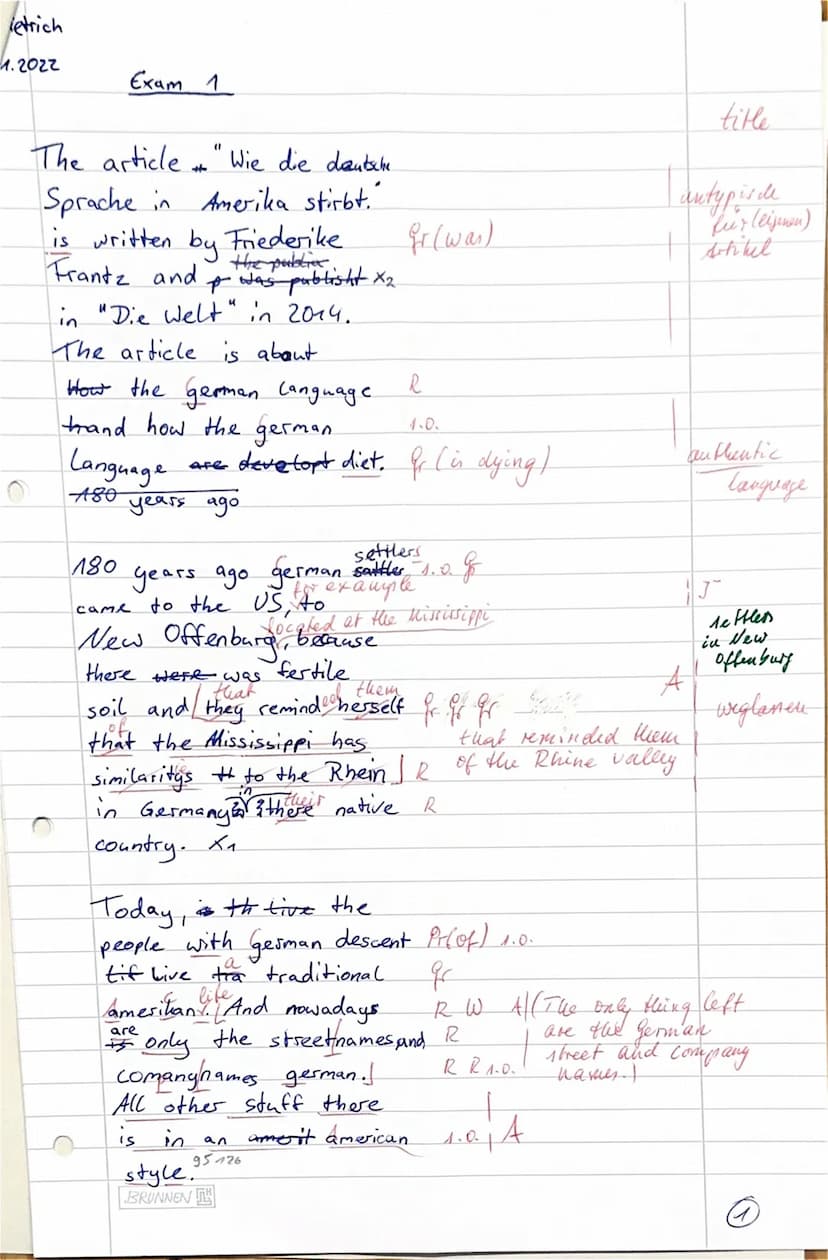 ietrich
1.2022
Exam 1
title
The article "Wie die deutsche
Sprache in Amerika stirbt."
untypische
für (eigenen)
Artikel
is written by Friederike gr (was)
the public
Frantz and p was publisht x2
in "Die Welt" in 2014.
The article is about
How the german language R
and how the german 1.0.
language are developt diet. gr (is dying)
authentic
language
180 years ago
settlers
180 years ago german sattler 1.0. gr
for example
came to the US, to
located at the Mississippi
New Offenburg, because
settlers
in New
Offenburg
there were was fertile
that ed them
soil and they remind herself gr gr gr A
weglassen
of
that the Mississippi has that reminded them
similaritys to the Rhein R of the Rhine valley
in their
in Germany there native R
country. x1
Today, is th live the
people with german descent Pr(of) 1.0.
a
live tra traditional gr
c life
Amerikan. And nowadays R W A (The only thing left
are
is only the streetnames and R are the German
street and company
comanynames german. R R 1.0. names.)
All other stuff there
is in an amerit american 1.0. A
style. 95 126
BRUNNEN
1